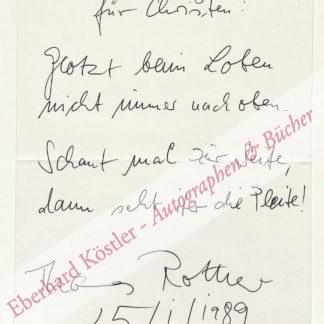 für Christen!
Glotzt beim Loben
nicht immer nach oben.
Schaut mal zur Seite,
dann seht ihr die Pleite!
Thomas Rother
15/1/1989
Eberhard Köstler - Autographen & Bücher